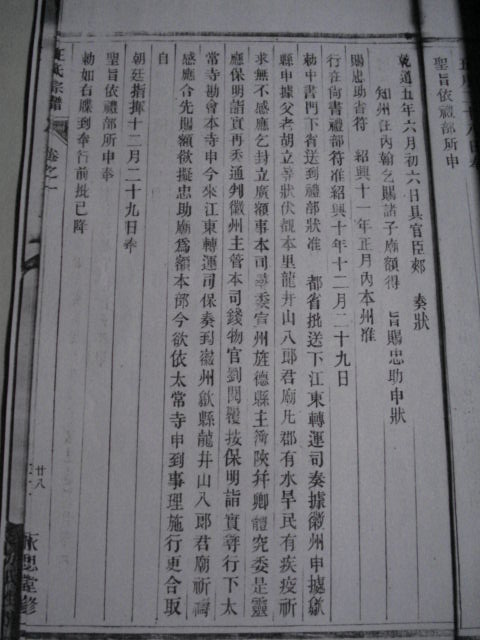 聖旨依禮部所申
乾道五年六月初六日具官臣郟 奏狀
知州汪內翰乞賜諸子廟額得 旨賜忠助申狀
賜忠助告符 紹興十一年正月內本州准
行在尚書禮部符准紹興十年十二月二十九日
勅中書門下省送到禮部狀准 都省批送下江東轉運司奏據徽州申據歙
縣申據父老胡立等狀伏覩本里龍井山八郎君廟凡郡有水旱民有疾疫祈
求無不感應乞封立廣額事本司尋委宣州旌德縣主簿陝幷卿體究委是靈
應保明詣實再委通判徽州主管本司錢物官劉閱覆按保明詣實尋行下太
常寺勘會本寺申今來江東轉運司保奏到徽州歙縣龍井山八郎君廟祈禱
感應合先賜額欲擬忠助廟爲額本部今欲依太常寺申到事理施行更合取
自
朝廷指揮十二月二十九日奉
聖旨依禮部所申奉
勅如右牒到奉行前批已降
汪氏宗譜
卷之一
廿八